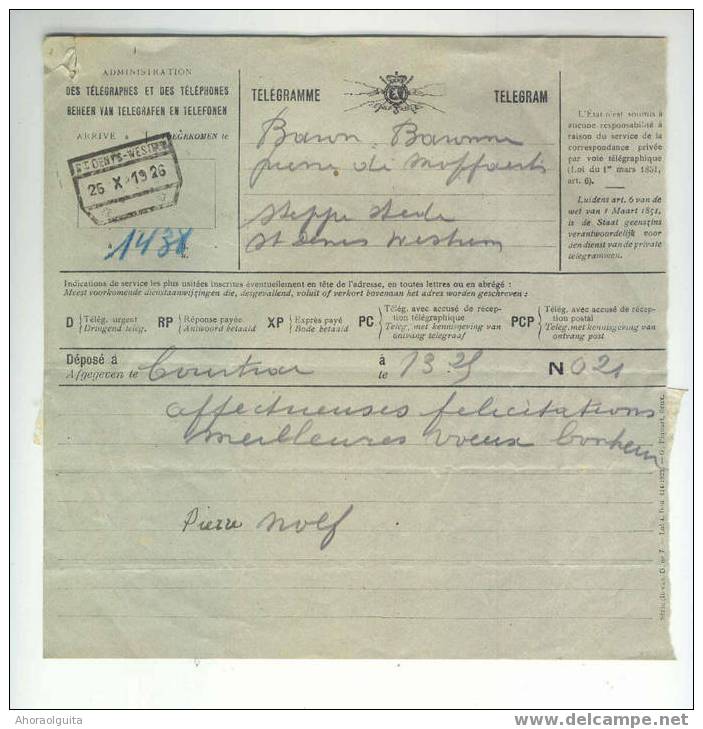 ADMINISTRATION
DES TÉLÉGRAPHES ET DES TÉLÉPHONES
BEHEER VAN TELEGRAFEN EN TELEFONEN
ARRIVÉ à TOEGEKOMEN te
ST DENYS-WESTREM
26 X 1926
1438
TÉLÉGRAMME TELEGRAM
Baron Baronne
pierre de Moffaerts
Steppe Stede
St Denis Westrem
L'État n'est soumis à
aucune responsabilité à
raison du service de la
correspondance privée
par voie télégraphique
(Loi du 1er mars 1851,
art. 6).
Luidens art. 6 van de
wet van 1 Maart 1851,
is de Staat geenszins
verantwoordelijk voor
den dienst van de private
telegrammen.
Indications de service les plus usitées inscrites éventuellement en tête de l'adresse, en toutes lettres ou en abrégé :
Meest voorkomende dienstaanwijzingen die, desgevallend, voluit of verkort bovenaan het adres worden geschreven :
D Télég. urgent
Dringend teleg.
RP Réponse payée
Antwoord betaald
XP Exprès payé
Bode betaald
PC Télég. avec accusé de récep-
tion télégraphique
Teleg. met kennisgeving van
ontvang telegraaf
PCP Télég. avec accusé de récep-
tion postal
Teleg. met kennisgeving van
ontvang post
Déposé à Courtrai à 13.25 N 021
Afgegeven te te
affectueuses felicitations
meilleures voeux bonheur
Pierre Nolf
Ahoraolguita
www.delcampe.net